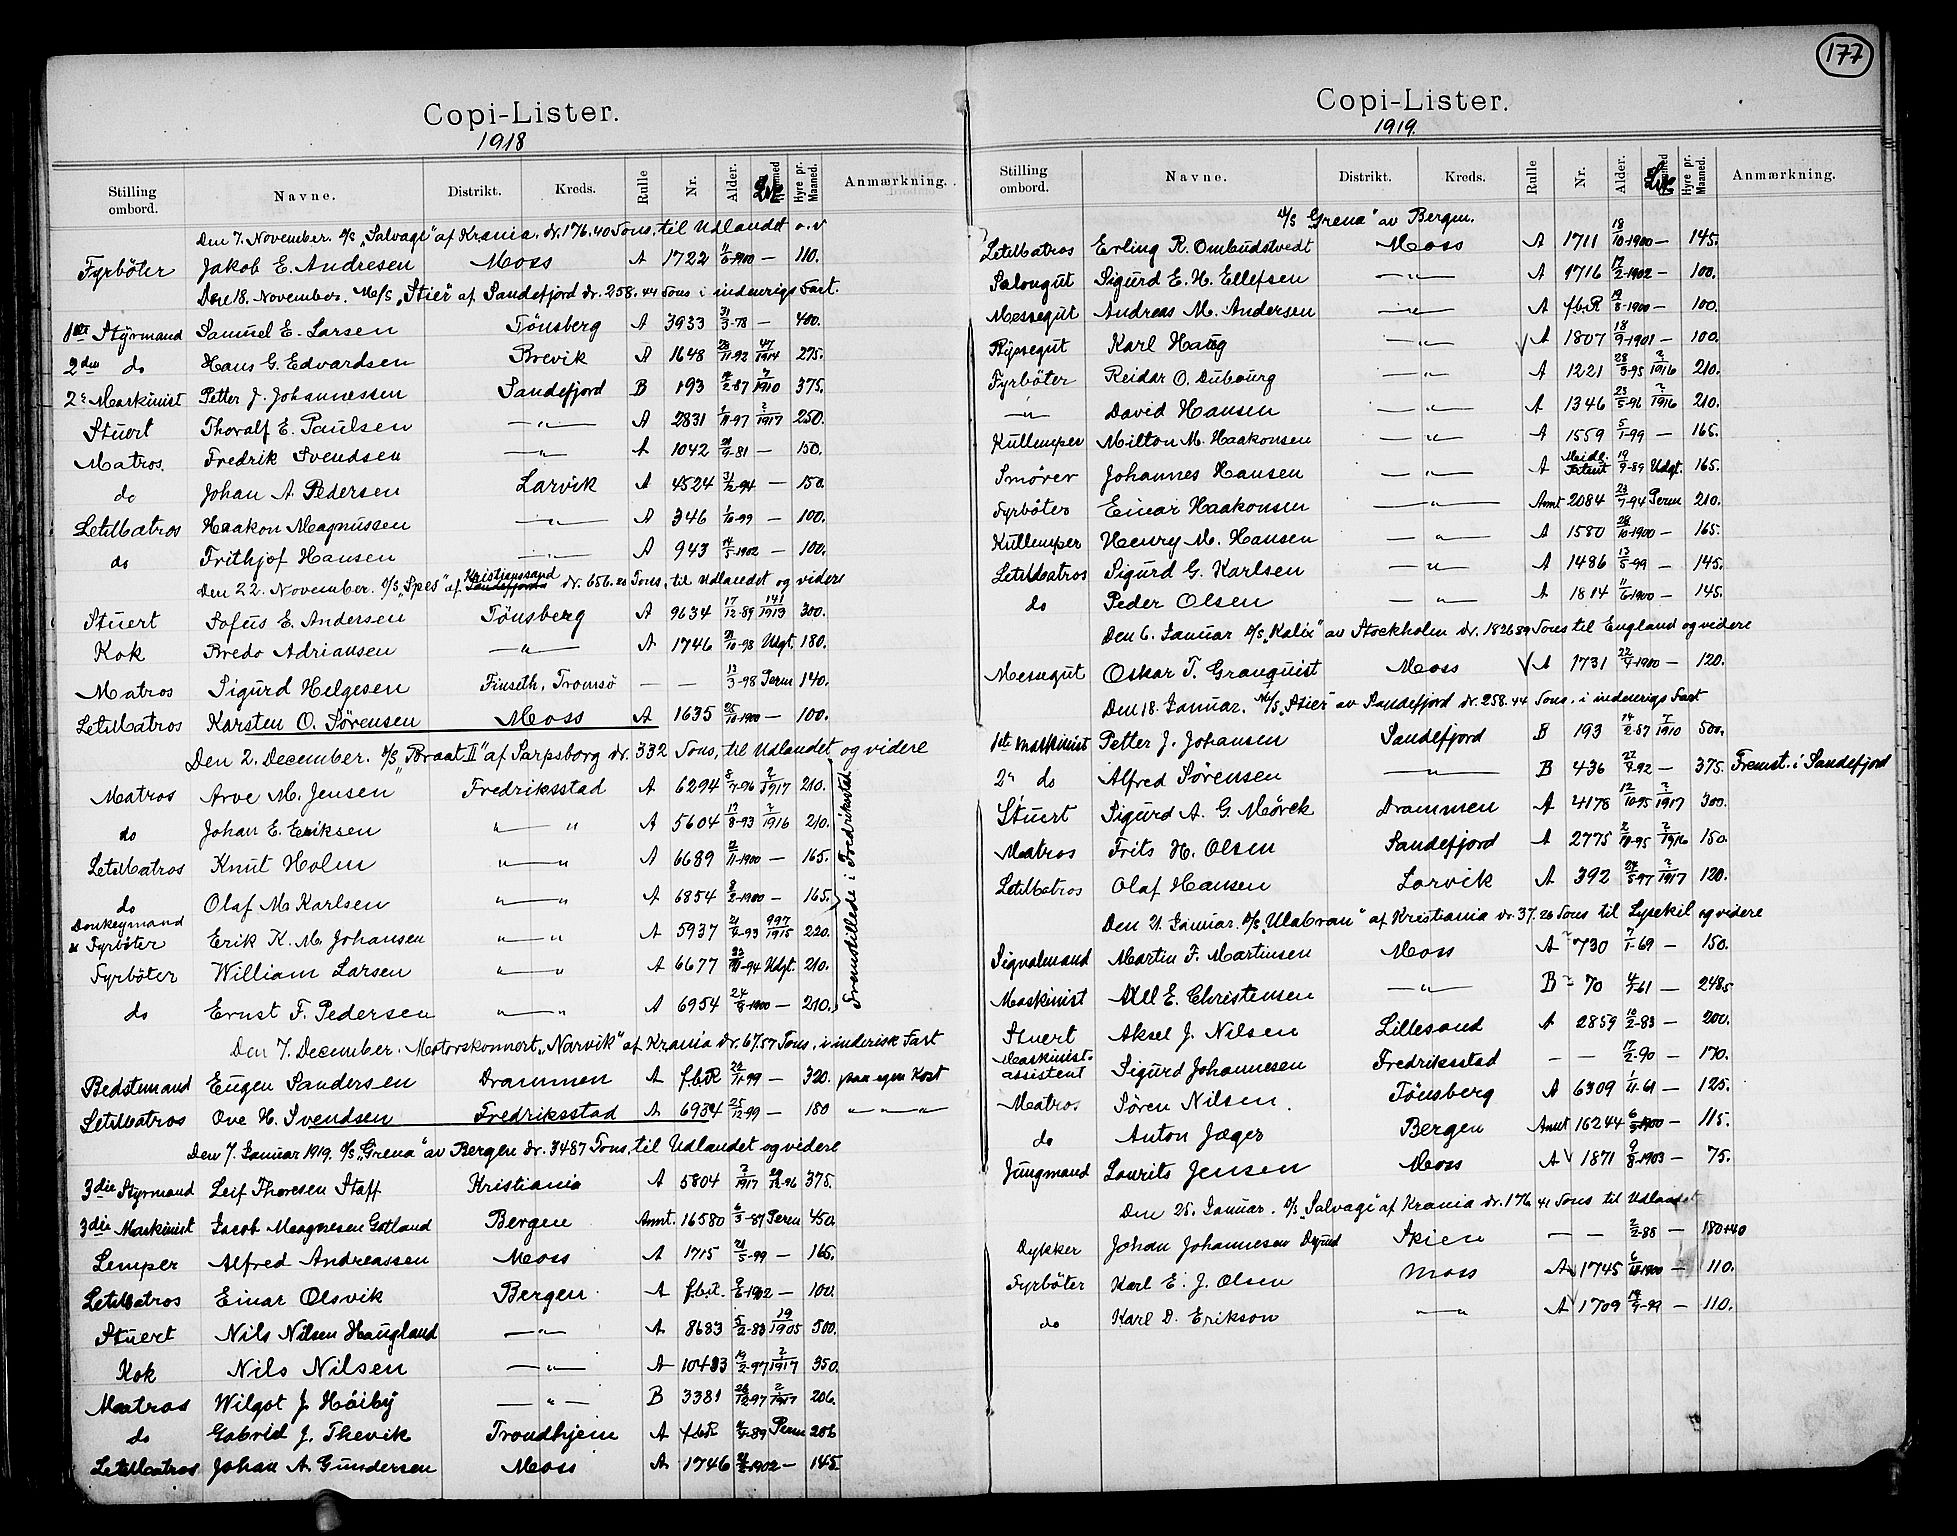 177
Copi-Lister.
1918
Stilling ombord. Navne. Distrikt. Kreds. Rulle Nr. Alder. Hyre pr. Maaned. Anmærkning.
Den 7. November. S/S „Salvage" af Krania. dr. 176.40 Tons, til Udlandet o.v
Fyrböter Jakob E. Andresen Moss A 1722 11/6-1900 — 110.
Den 18. November. M/S „Stier" af Sandefjord dr. 258.44 Tons i indenrigs Fart.
1ste Styrmand Samuel E. Larsen Tönsberg A 3933 31/3-78 — 400.
2den do Hans G. Edvardsen Brevik A 1648 28/11-92 47/1914 275.
2n Maskinist Petter J. Johannessen Sandefjord B 193 14/2-87 7/1910 375.
Stuert Thoralf E. Paulsen —"— A 2831 /11-97 2/1917 250.
Matros Fredrik Svendsen —"— A 1042 /9-81 — 150.
do Johan A. Pedersen Larvik A 4524 31/12-94 — 150.
LetMatros Haakon Magnussen —"— A 346 1/10-99 — 100.
do Frithjof Hansen —"— A 943 14/5-1902 — 100.
Den 22. November. S/S „Spes" af Sandefjord Kristianssand dr. 656.20 Tons, til Udlandet og videre
Stuert Sofus E. Andersen Tönsberg A 9634 17/12-89 141/1913 300.
Kok Bredo Adriansen —"— A 1746 21/10-98 Udgt. 180.
Matros Sigurd Helgesen Finseth, Tromsö — — 13/3-98 Perm 140.
LetMatros Karsten O. Sørensen Moss A 1635 25/10-1900 — 100.
Den 2. December. S/S „Braat II" af Sarpsborg dr. 332 Tons, til Udlandet og videre
Matros Arve M. Jensen Fredriksstad A 6294 5/7-96 2/1917 210.
do Johan E. Eriksen "—" A 5604 17/8-93 ?/1916 210.
LetMatros Knut Holm "—" A 6689 12/11-1900 — 165.
do Olaf M. Karlsen "—" A 6854 8/2-1900 — 165.
Donkeymand & Fyrböter Erik K. M. Johansen "—" A 5937 21/4-93 997/1915 220.
Fyrböter William Larsen "—" A 6677 22/11-94 Udgt. 210.
do Ernst F. Pedersen "—" A 6954 24/8-1900 — 210.
Fremstillede i Fredrikstad
Den 7. December. Motorskonnert „Narvik" af Krania dr. 67.57 Tons, i inderisk Fart
Bedstemand Eugen Sandersen Drammen A f.b.R 22/11-99 — 320. paa egen Kost
LetMatros Ove H. Svendsen Fredriksstad A 6934 25/12-99 — 180 " — " — "
Den 7. Januar 1919. S/S „Grena" av Bergen dr. 3487 Tons, til Udlandet og videre
3die Styrmand Leif Thoresen Staff Kristiania A 5804 2/1917 29/12-96 375.
3die Maskinist Jacob Maagnesen Gotland Bergen Annt. 16580 6/3-87 Perm 450.
Lemper Alfred Andreassen Moss A 1715 21/5-99 — 165.
LetMatros Einar Olsvik Bergen A f.b.R. 9/6-1902 — 100.
Stuert Nils Nilsen Haugland —"— A 8683 5/2-80 19/1905 500.
Kok Nils Nilsen —"— A 10483 19/2-97 2/1917 350.
Matros Wilgot J. Höiby —"— B 3381 26/12-97 2/1917 206.
do Gabriel J. Thevik Trondhjem A f.b.R /9-89 Perm 206
LetMatros Johan A. Gundersen Moss A 1746 /2-1902 — 145.
Copi-Lister.
1919.
Stilling ombord. Navne. Distrikt. Kreds. Rulle Nr. Alder. Hyre pr. Maaned. Anmærkning.
S/S „Grena" av Bergen.
LetMatros Erling R. Ombudstvedt Moss A 1711 18/10-1900 — 145.
Salongut Sigurd E. H. Ellefsen —"— A 1716 17/2-1902 — 100.
Messegut Andreas M. Andersen —"— A f.b.R 19/8-1900 — 100.
Rypsegut Karl Haug —"— A 1807 18/9-1901 — 100.
Fyrböter Reidar O. Dubourg —"— A 1221 28/3-95 2/1916 210.
—"— David Hansen —"— A 1346 23/5-96 2/1916 210.
Kullemper Milton M. Haakonsen —"— A 1559 5/1-99 — 165.
Smörer Johannes Hansen —"— A Meidl. Patent 19/9-89 Udgt. 165.
Fyrböter Einar Haakonsen —"— Annt 2084 23/7-94 Perm 210.
Kullemper Henry M. Hansen —"— A 1580 28/10-1900 — 165.
LetMatros Sigurd G. Karlsen —"— A 1486 13/5-99 — 145.
do Peder Olsen —"— A 1814 11/6-1900 — 145.
Den 6. Januar S/S „Kalix" av Stockholm dr. 1826.89 Tons til England og videre
Messegut Oskar T. Granquist Moss A 1731 22/9-1900 — 120.
Den 18. Januar. M/S „Stier" av Sandefjord dr. 258.44 Tons. i indenrigs Fart
1ste Maskinist Petter J. Johansen Sandefjord B 193 14/2-87 7/1910 500.
2n do Alfred Sørensen —"— B 436 27/9-92 — 375. Fremst. i Sandefjord
Stuert Sigurd A. G. Mörck Drammen A 4178 12/10-95 2/1917 300.
Matros Frits H. Olsen Sandefjord A 2775 2/10-95 2/1916 150.
LetMatros Olaf Hansen Larvik A 392 24/5-97 2/1917 120.
Den 21. Januar. S/S „Ulabrau" af Kristiania dr. 37.26 Tons til Lysekil og videre
Signalmand Martin F. Martinsen Moss A 730 7/1-69 — 150.
Maskinist Axel E. Christensen —"— B 70 4/7-61 — 248.5
Stuert Aksel J. Nilsen Lillesand A 2859 10/2-83 — 200.
Maskinist-assistent Sigurd Johannesen Fredriksstad — — 17/2-90 — 170.
Matros Søren Nilsen. Tönsberg A 6309 1/11-61 — 125.
do Anton Jæger Bergen Annt 16244 6/3-1900 — 115.
Jungmand Laurits Jensen Moss A 1871 9/8-1903 — 75.
Den 25. Januar. S/S „Salvage" af Krania dr. 176.41 Tons til Udlandet
Dykker Johan Johannesen Skien — — 2/2-88 — 180+40
Fyrböter Karl E. J. Olsen Moss A 1745 6/10-1900 — 110.
do Karl D. Erikson —"— A 1709 19/9-99 — 110.